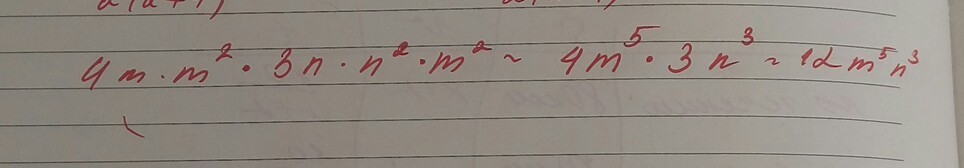 4m·m²·3n·n²·m² ~ 4m⁵·3n³ ~ 12m⁵n³